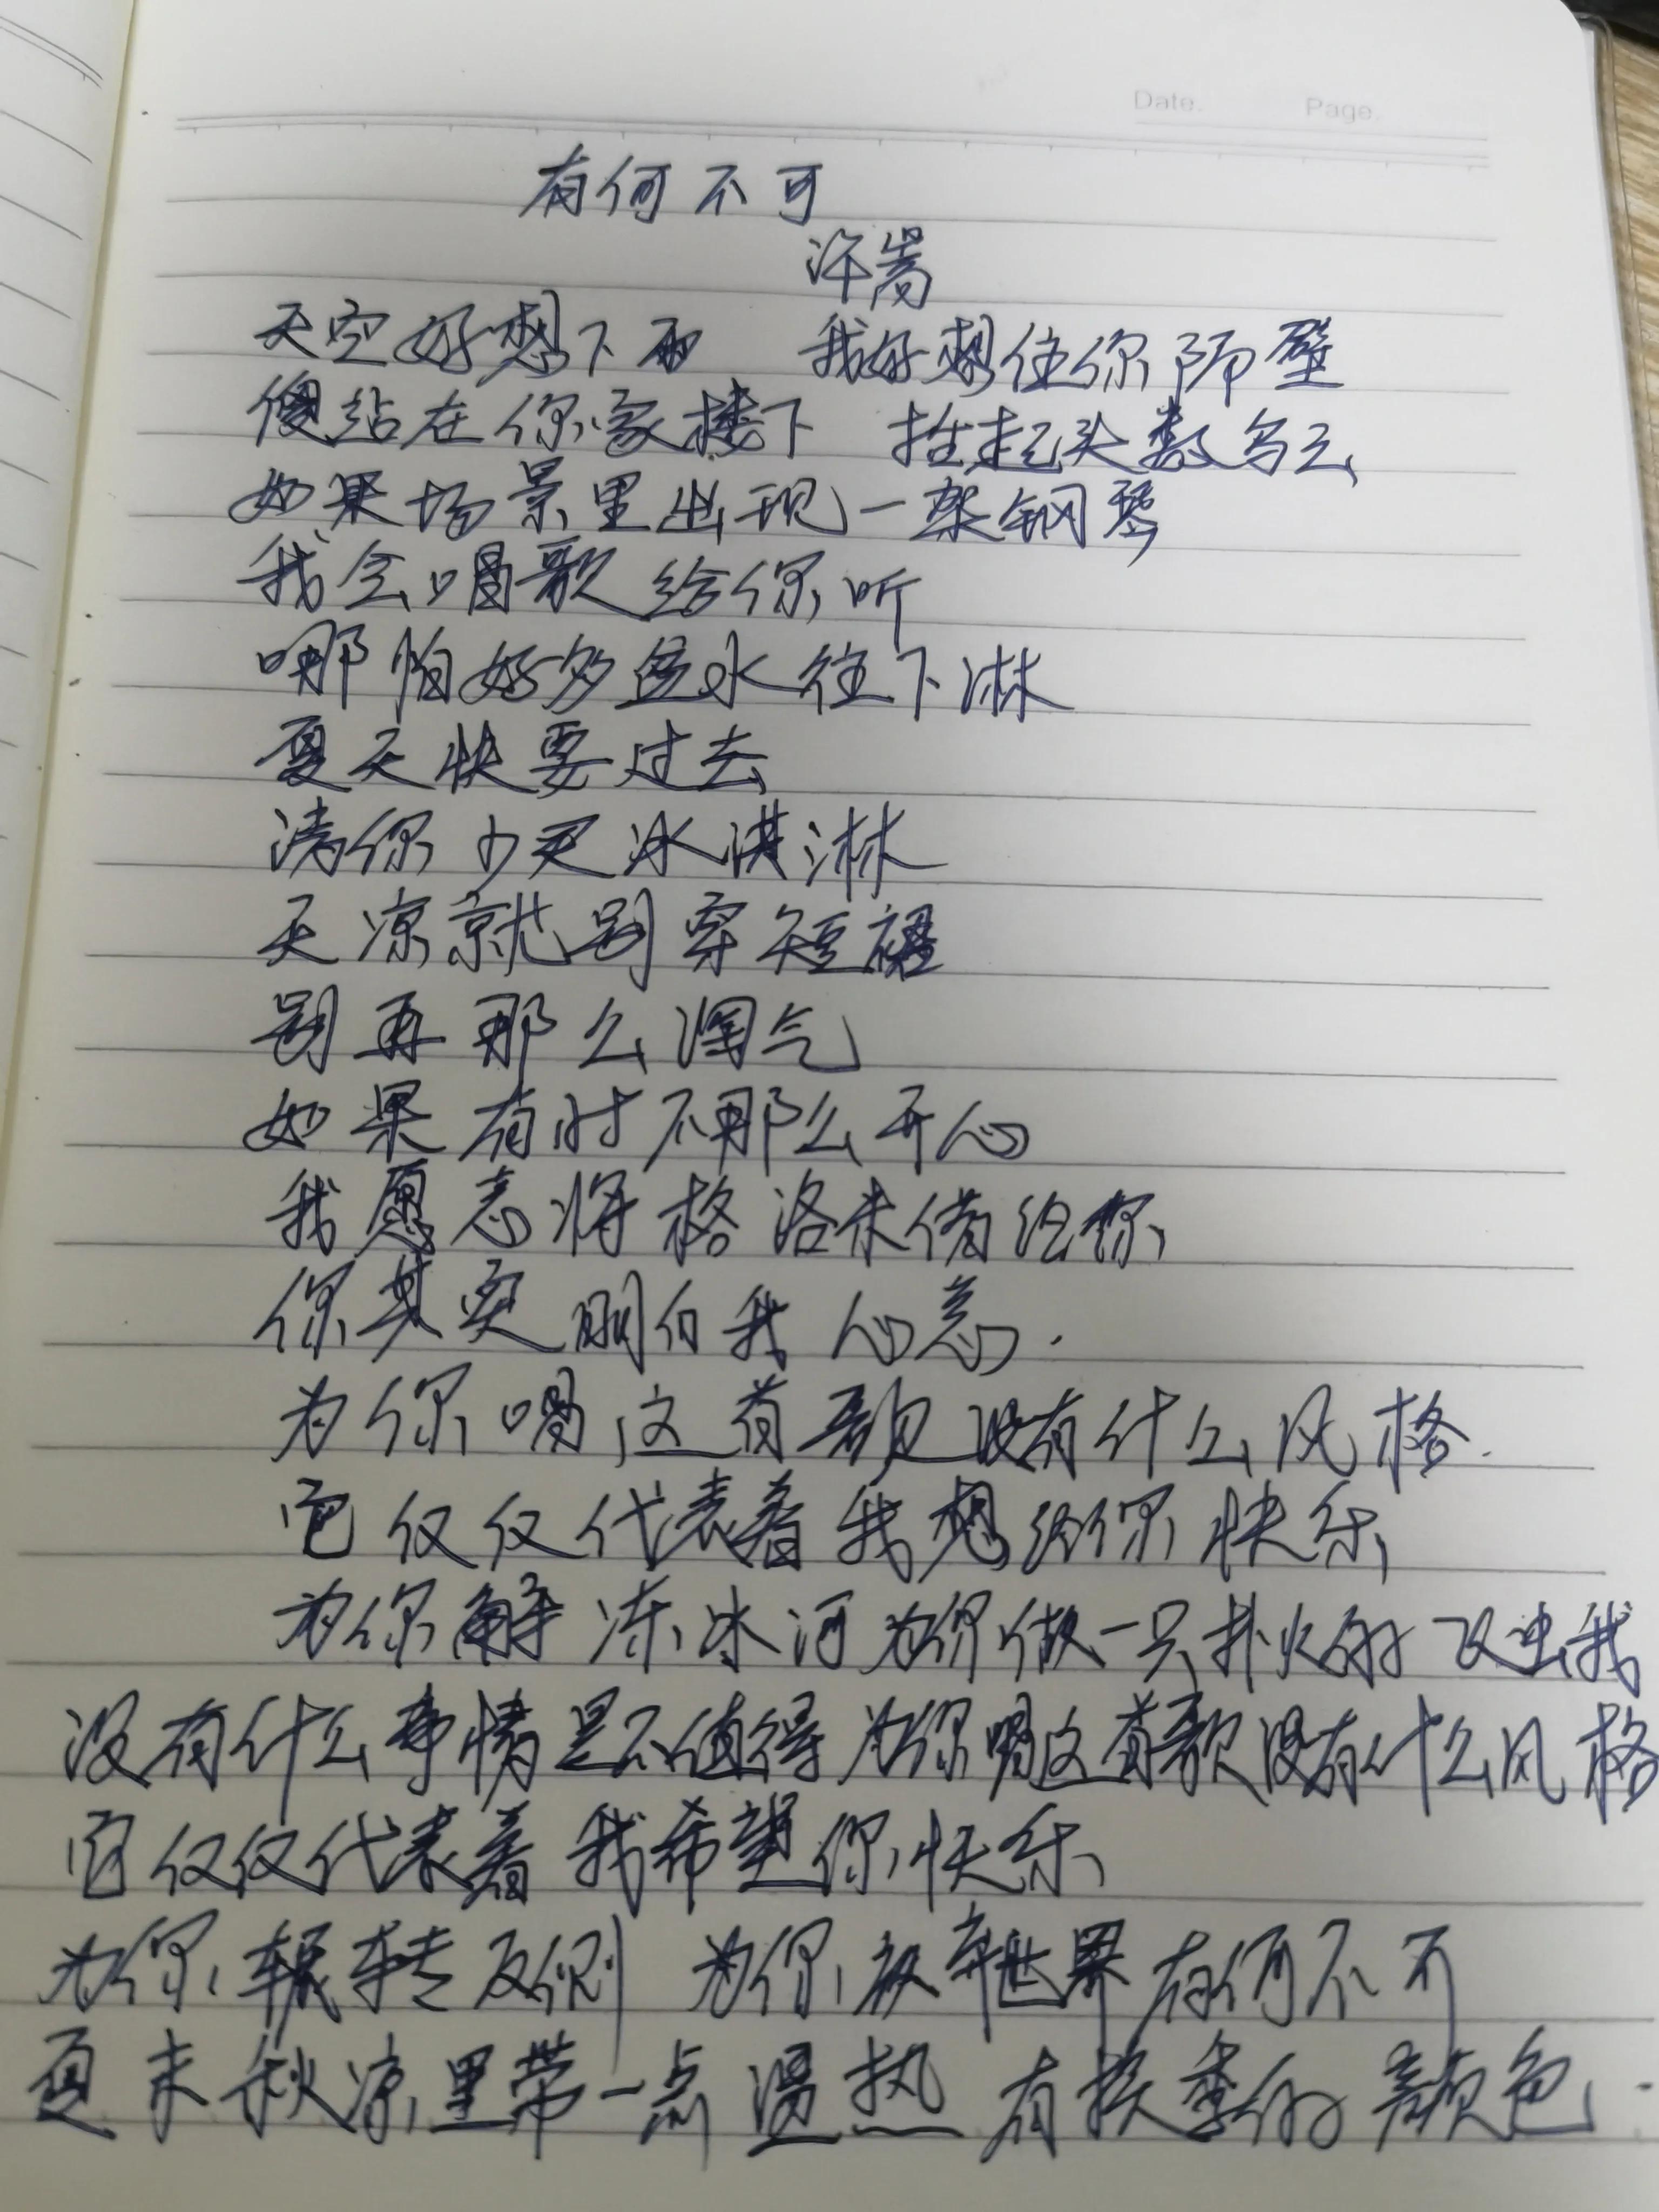 Date. Page.
有何不可
许嵩
天空好想下雨 我好想住你隔壁
傻站在你家楼下 抬起头数乌云
如果场景里出现一架钢琴
我会唱歌给你听
哪怕好多盆水往下淋
夏天快要过去
请你少买冰淇淋
天凉就别穿短裙
别再那么淘气
如果有时不那么开心
我愿意将格洛米借给你
你其实明白我心意.
为你唱这首歌没有什么风格.
它仅仅代表着我想给你快乐
为你解冻冰河为你做一只扑火的飞虫我
没有什么事情是不值得为你唱这首歌没有什么风格
它仅仅代表着我希望你快乐
为你辗转反侧 为你放弃世界有何不可
夏末秋凉里带一点温热有换季的颜色.